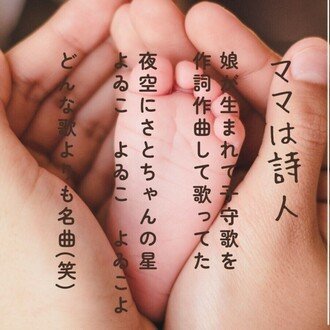 ママは詩人
娘が生まれて子守歌を
作詞作曲して歌ってた
夜空にさとちゃんの星
よゐこ よゐこ よゐこよ
どんな歌よりも名曲(笑)